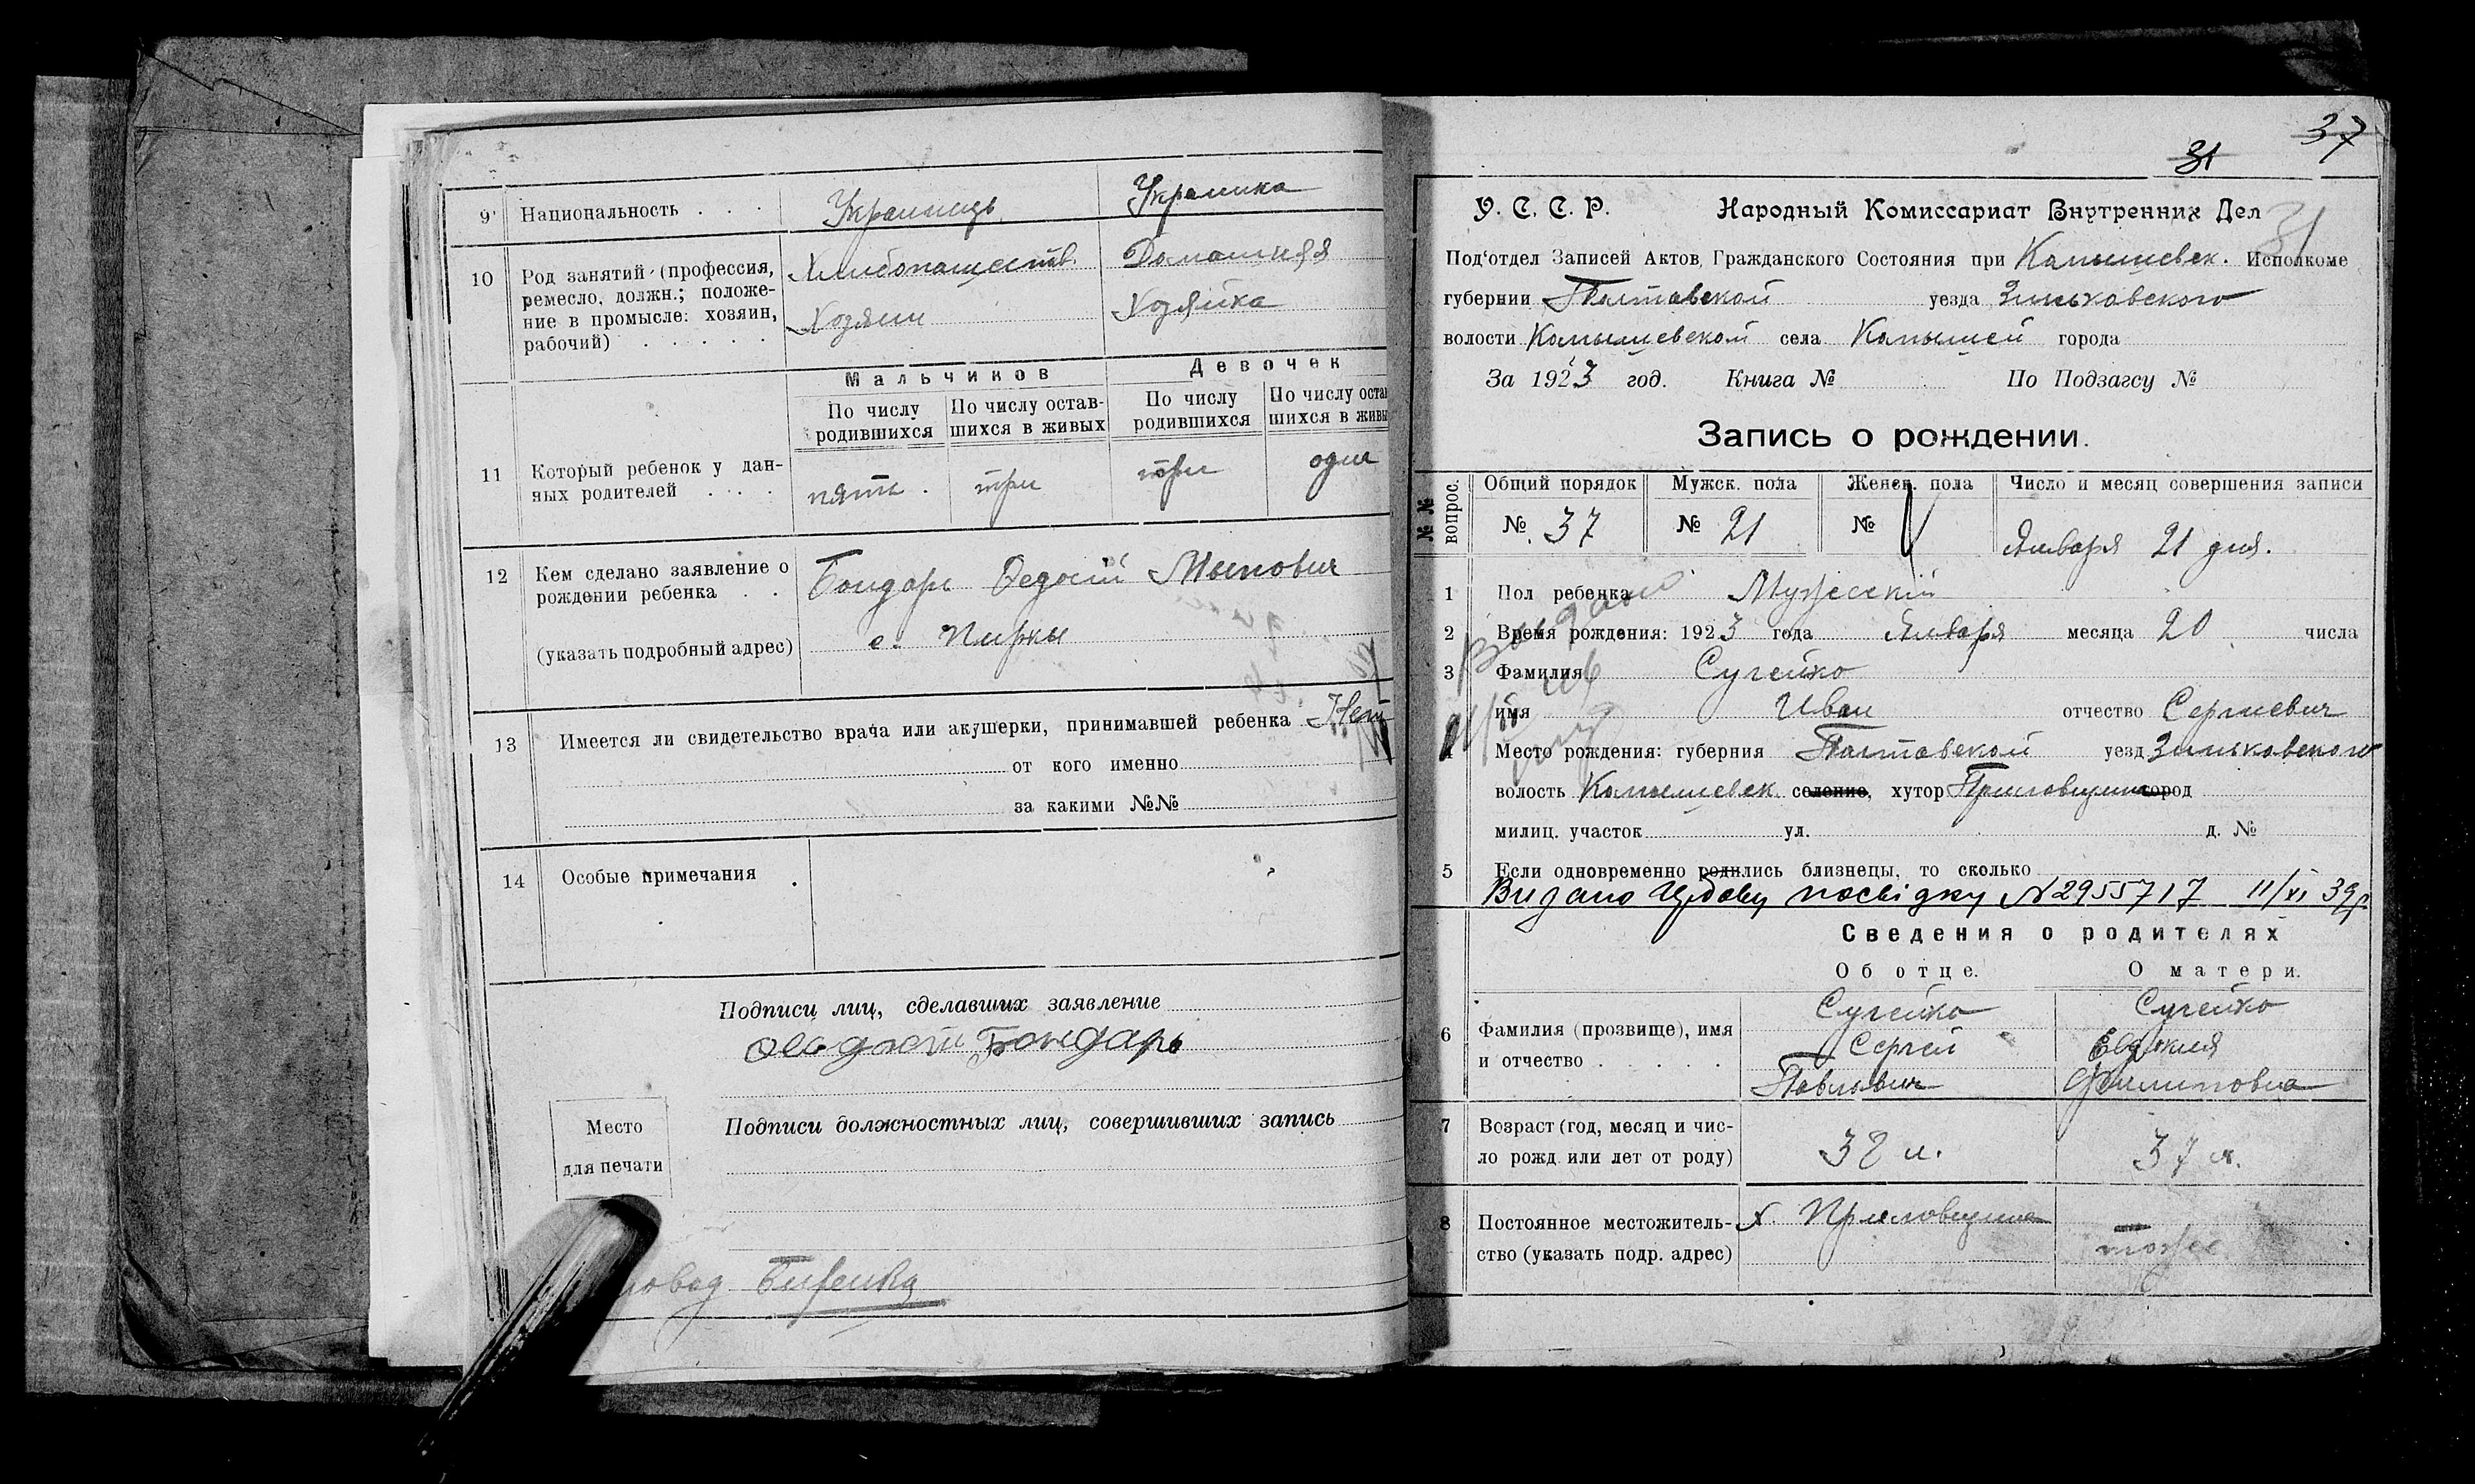 9 Национальность . . . Украинець Украинка
10 Род занятий (профессия, Хлибопашеств. Домашняя
ремесло, должн.; положе-
ние в промысле: хозяин, Хозяин Хозяйка
рабочий) . . . . .
Мальчиков Девочек
По числу По числу остав- По числу По числу оста
родившихся шихся в живых родившихся шихся в живы
11 Который ребенок у дан-
ных родителей . . . пять. три три один
12 Кем сделано заявление о Бондарь Федосий
рождении ребенка . .
(указать подробный адрес) с. Пирки
13 Имеется ли свидетельство врача или акушерки, принимавшей ребенка Нет
от кого именно
за какими №№
14 Особые примечания .
Подписи лиц, сделавших заявление
Бондарь
Место
для печати
Подписи должностных лиц, совершивших запись
37
31
У. С. С. Р. Народный Комиссариат Внутренних Дел
31
Под'отдел Записей Актов Гражданского Состояния при Камышевск. Исполкоме
губернии Полтавской уезда Зиньковского
волости Камышевской села Камышей города
За 1923 год. Книга № По Подзагсу №
Запись о рождении.
№№ вопрос. Общий порядок Мужск. пола Женск. пола Число и месяц совершения записи
№ 37 № 21 № Января 21 дня.
1 Пол ребенка Мужеский
2 Время рождения: 1923 года Января месяца 20 числа
3 Фамилия Сугейко
имя Иван отчество Сергиевич
4 Место рождения: губерния Полтавской уезд Зиньковского
волость Камышевск селение, хутор город
милиц. участок ул. д. №
5 Если одновременно родились близнецы, то сколько
Видано посвідку N 2955717 11/XI 39р
Сведения о родителях
Об отце. О матери.
6 Фамилия (прозвище), имя Сугейко Сугейко
и отчество . . . . . Сергей Евдокия
Павлович Филиповна
7 Возраст (год, месяц и чис-
ло рожд или лет от роду) 38 л. 37 л.
8 Постоянное местожитель- х.
ство (указать подр. адрес) тоже